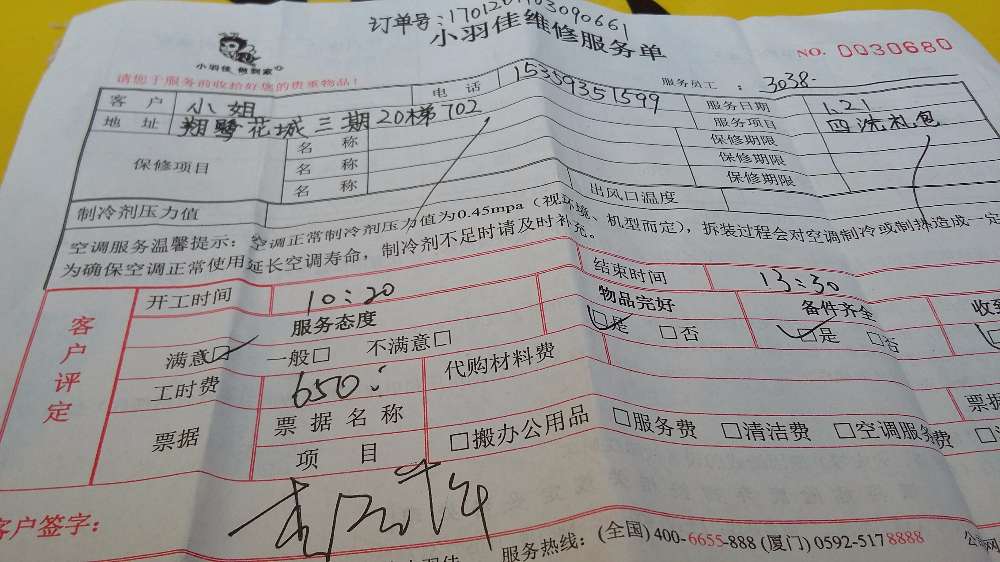 订单号:
小羽佳维修服务单
小羽佳 做到家
NO. 0030680
请您于服务前收拾好您的贵重物品!
服务员工: 3038.
客户 小姐 电话 15359351599 服务日期 1.21
地址 翔鹭花城三期20梯702 服务项目 四洗礼包
保修项目 名称 保修期限
名称 保修期限
名称 保修期限
制冷剂压力值 出风口温度
空调服务温馨提示: 空调正常制冷剂压力值为0.45mpa(视环境、机型而定), 拆装过程会对空调制冷或制热造成一定
为确保空调正常使用延长空调寿命, 制冷剂不足时请及时补充。
客户评定
开工时间 10:20 结束时间 13:30
服务态度 物品完好 备件齐全 收到
满意□ 一般□ 不满意□ □是 □否 □是 □否
工时费 650: 代购材料费
票据 票据名称 票据
项目 □搬办公用品 □服务费 □清洁费 □空调服务费
客户签字:
服务热线: (全国) 400-6655-888 (厦门) 0592-5178888